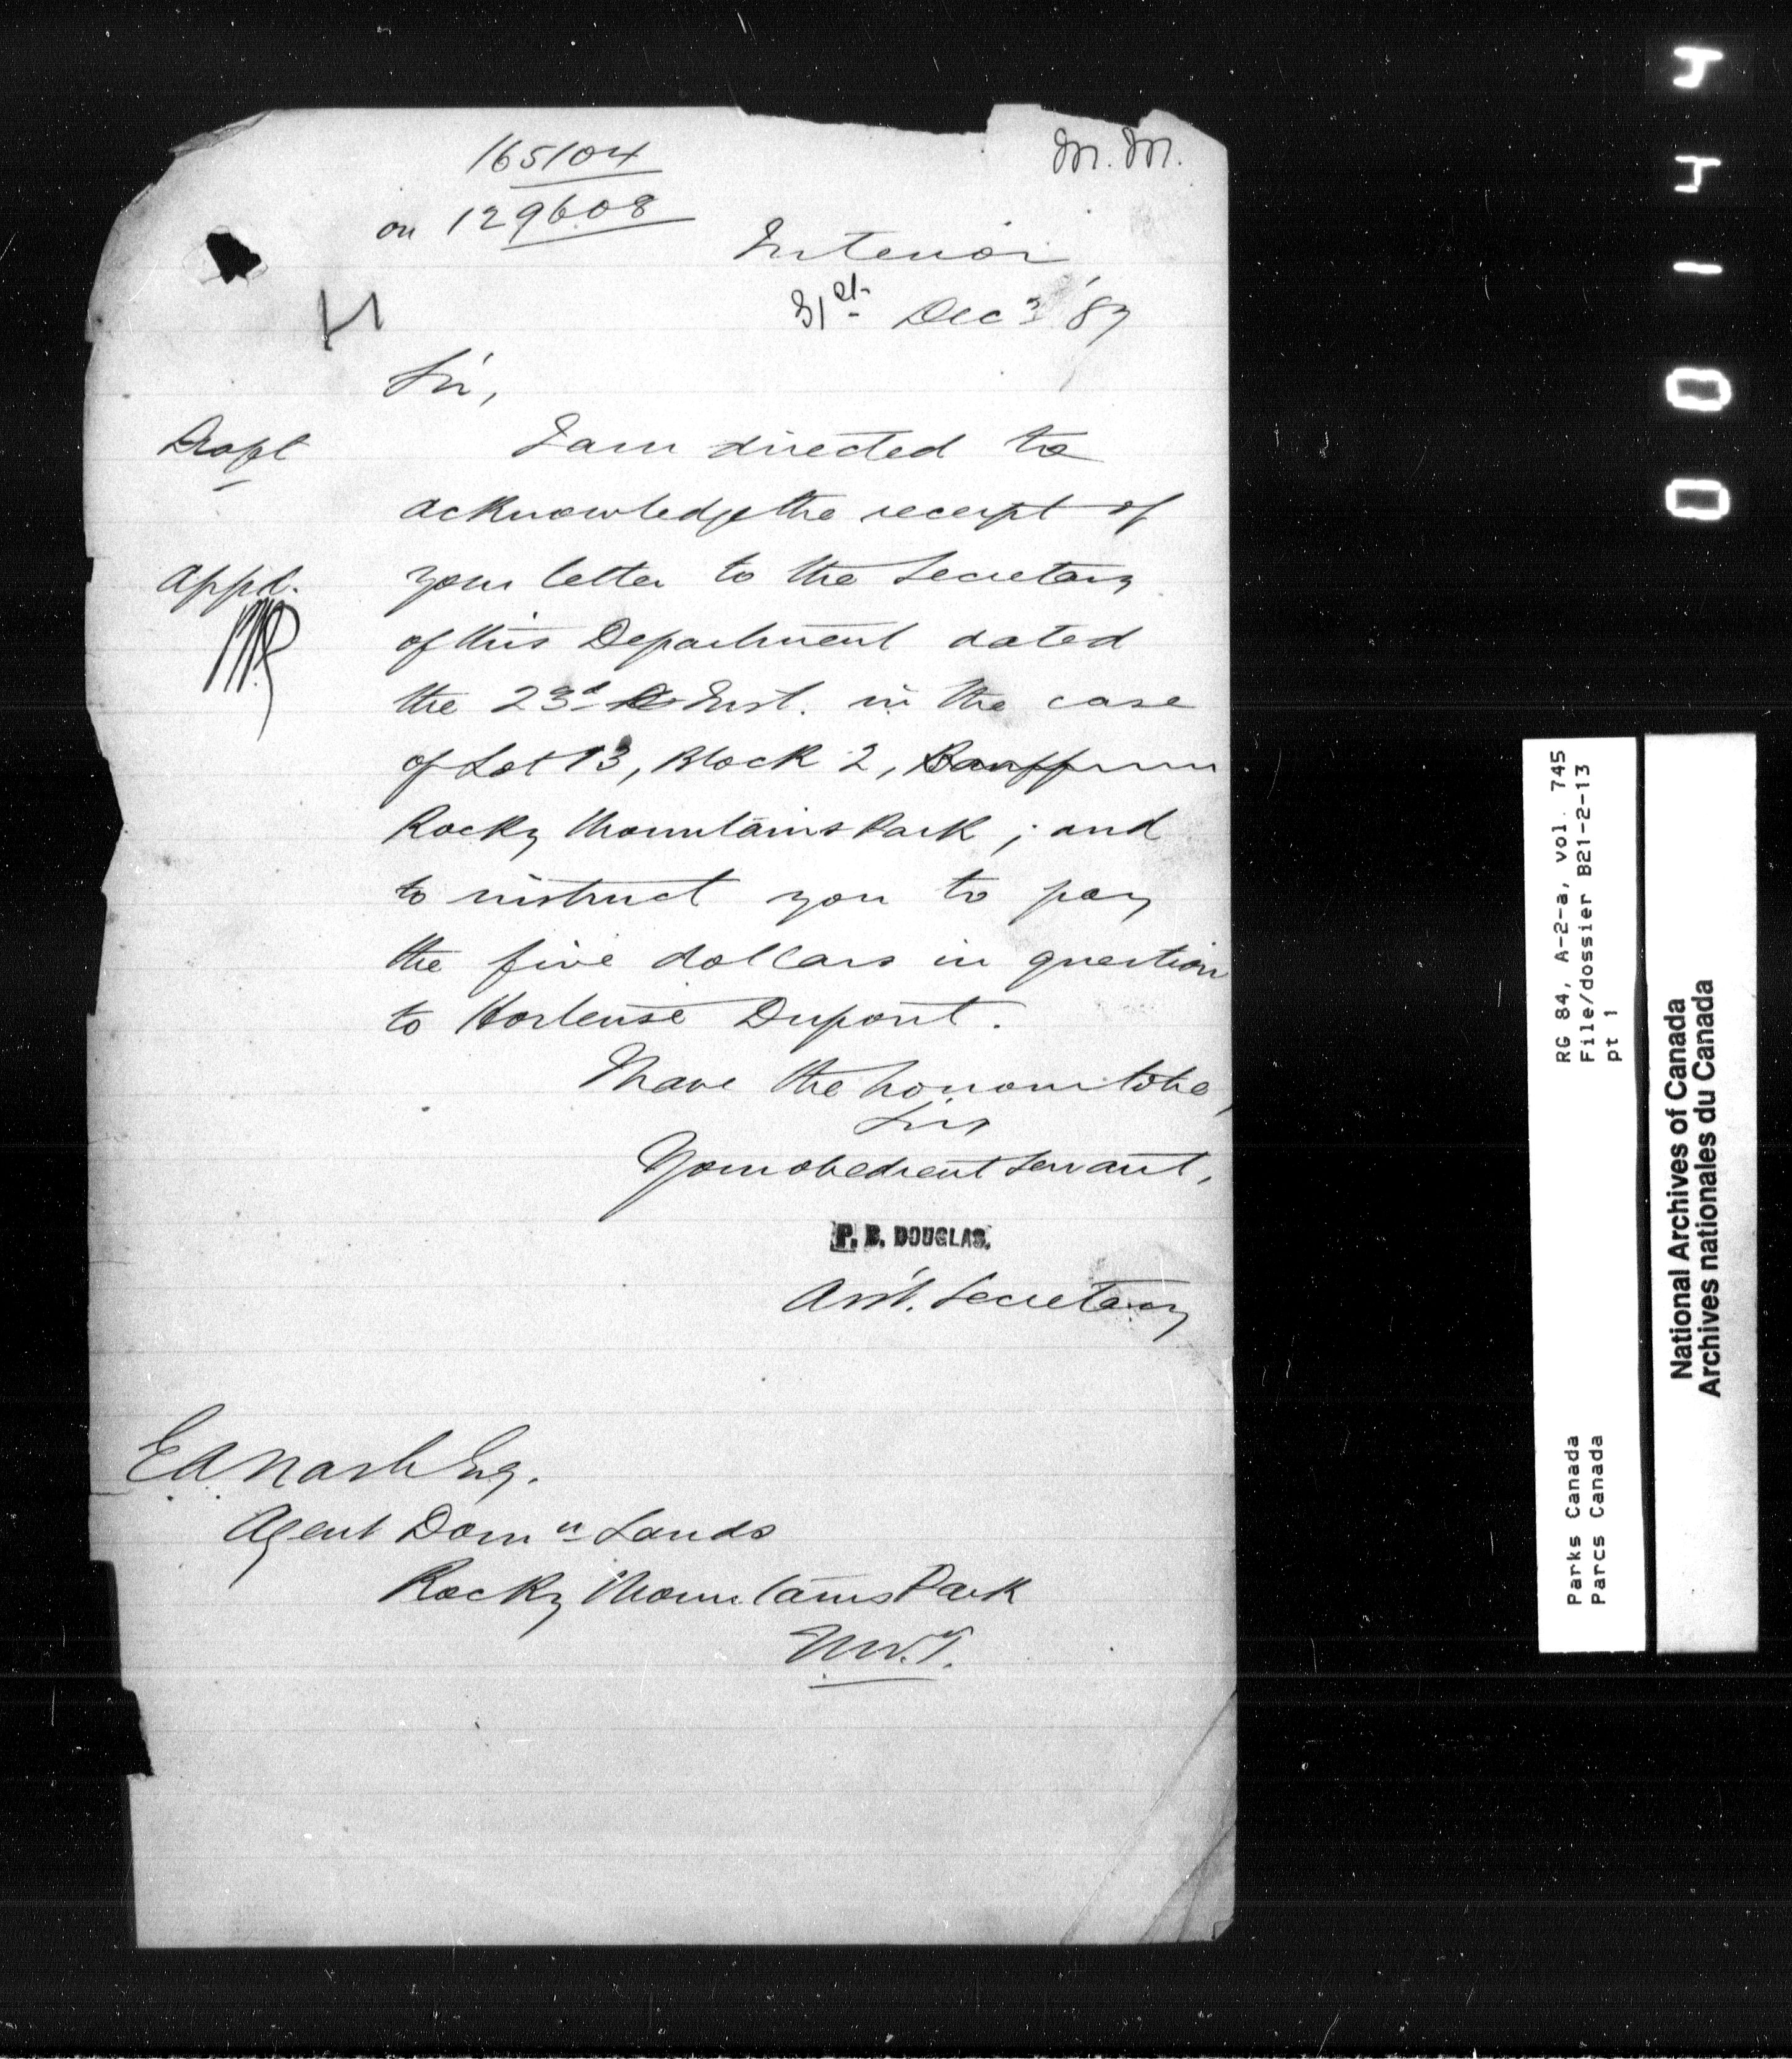 165104
on 129608
M.M.
Interior,
31st Decr '87
Sir,
Draft
I am directed to
acknowledge the receipt of
Appd.
your letter to the Secretary
of this Department dated
the 23d Inst. in the case
of Lot 13, Block 2, Banff
Rocky Mountains Park ; and
to instruct you to pay
the five dollars in question
to Hortense Dupont.
I have the honour to be,
Sir
Your obedient Servant,
P. B. DOUGLAS.
Asst. Secretary
E A Nash Esq.
Agent Domn Lands
Rocky Mountains Park
N.W.T.
RG 84, A-2-a, vol. 745
File/dossier B21-2-13
pt 1
Parks Canada
Parcs Canada
National Archives of Canada
Archives nationales du Canada